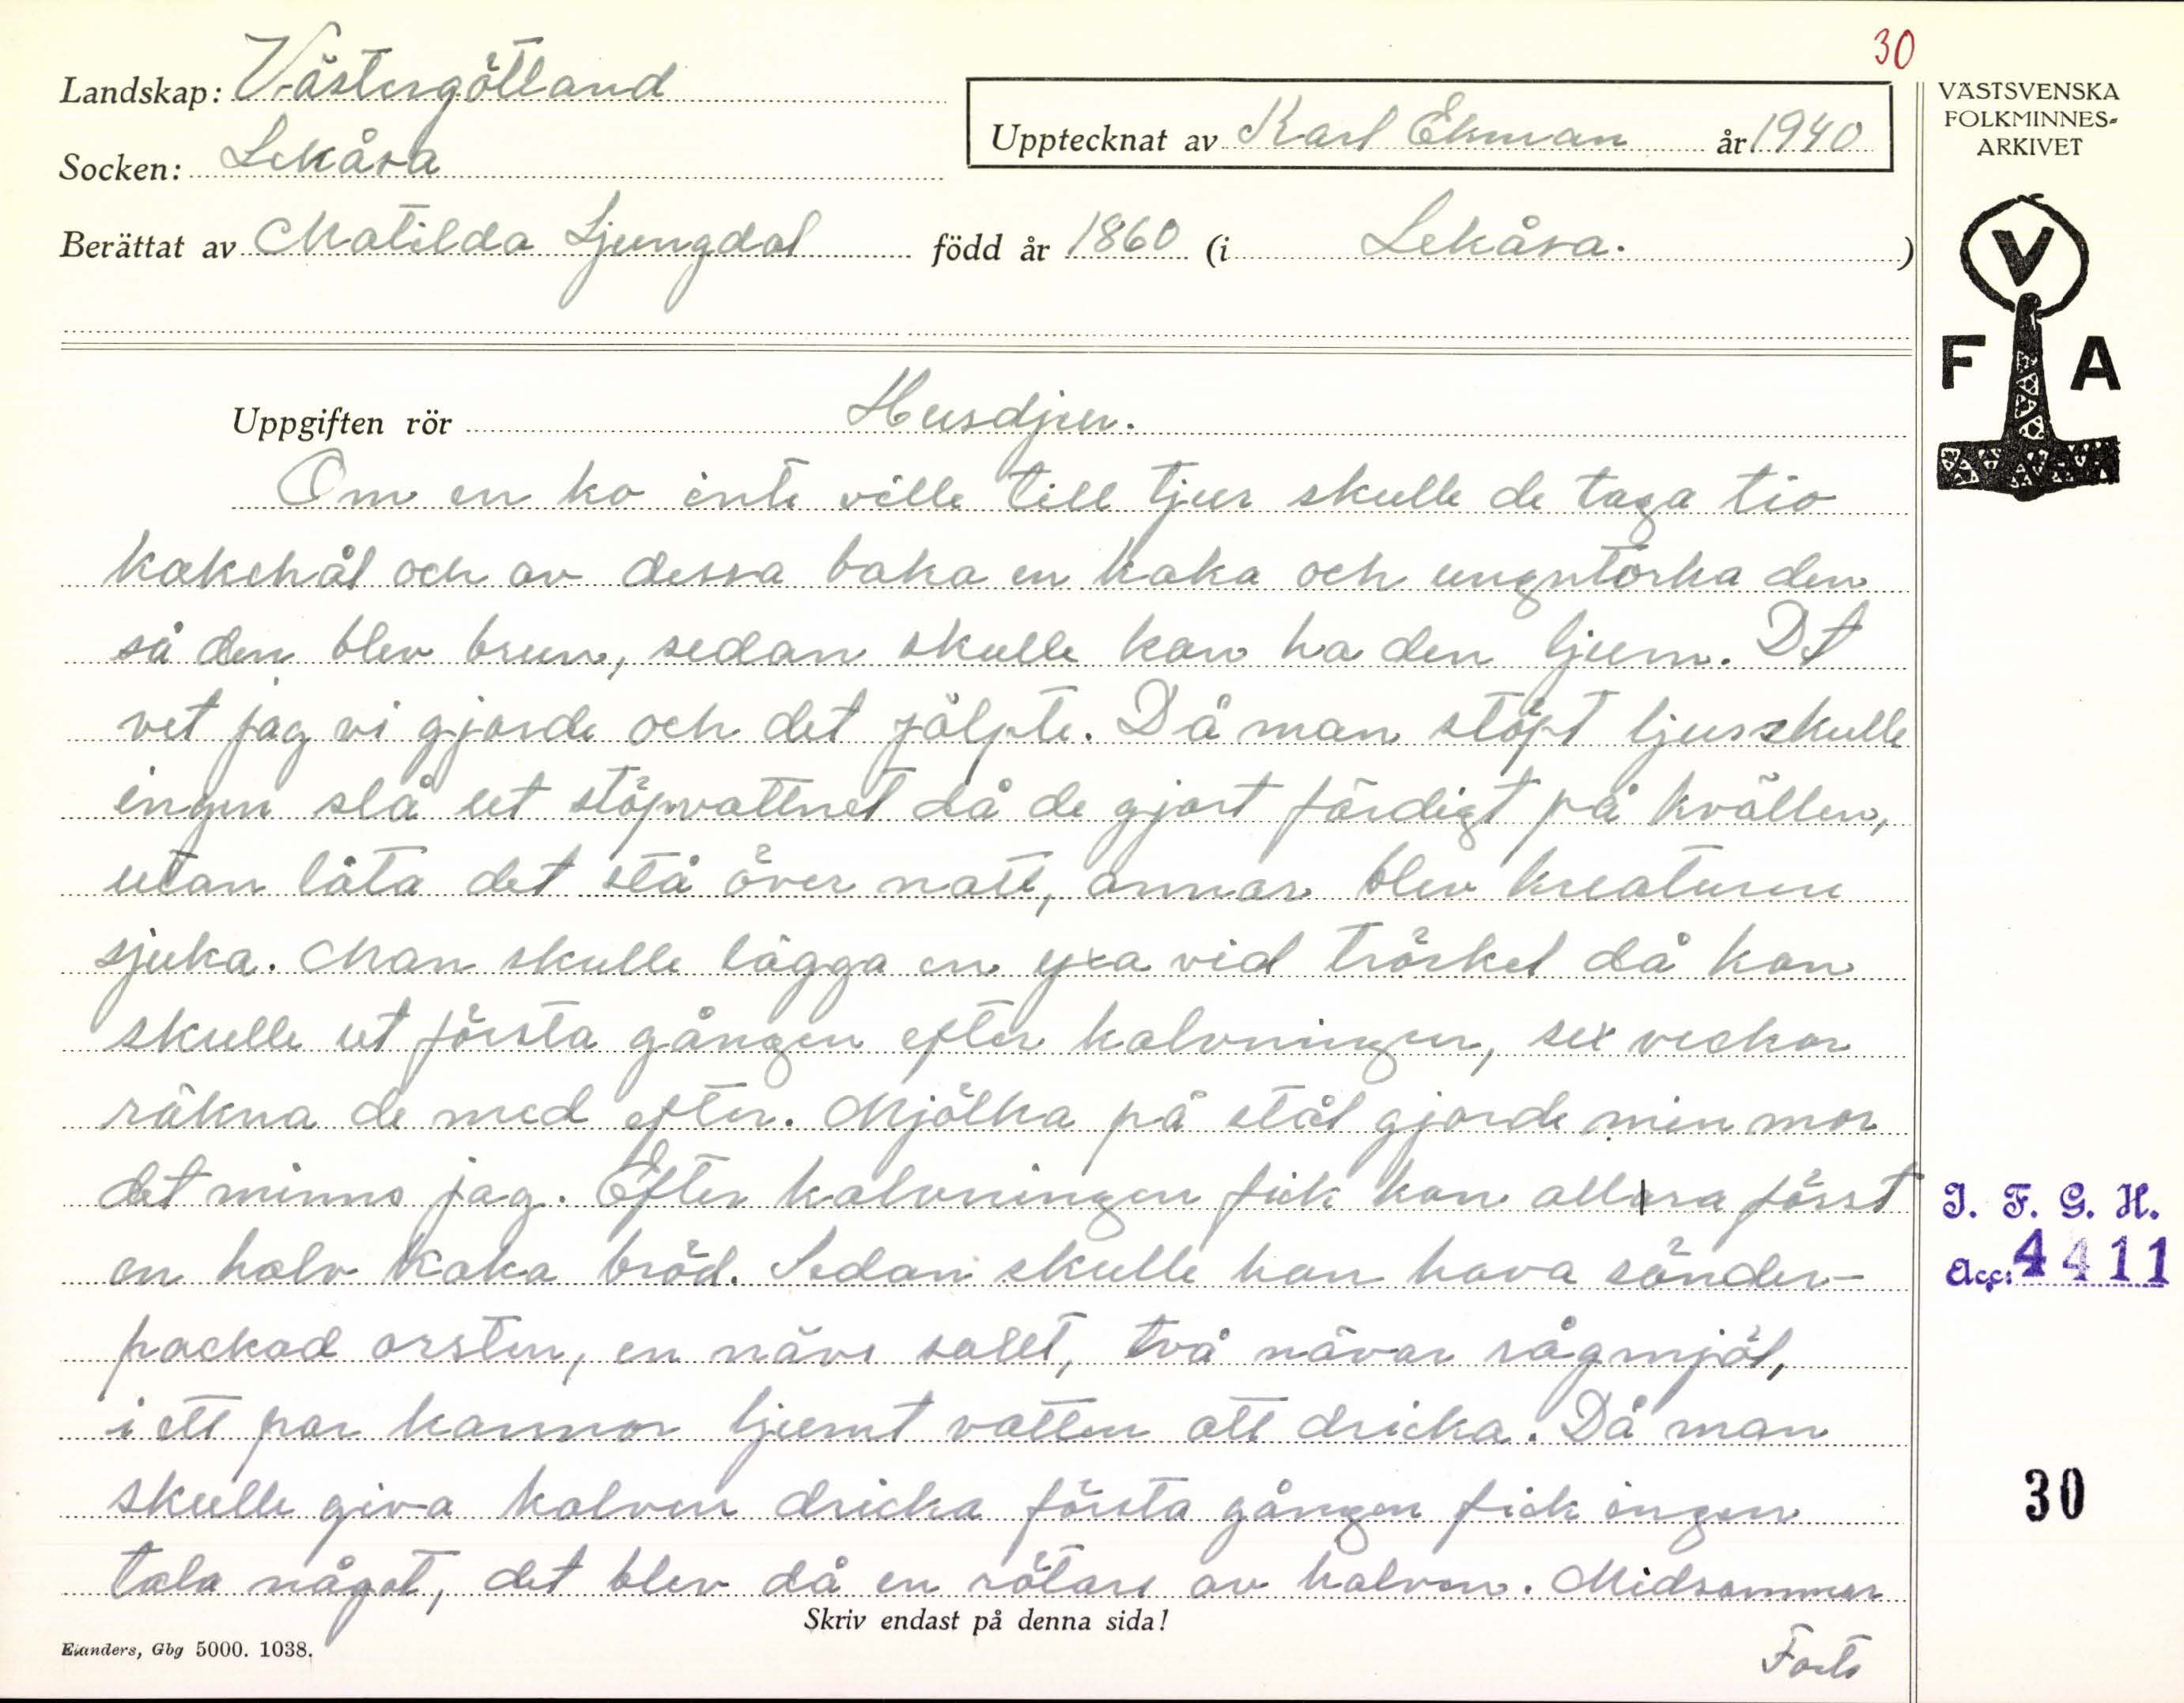 30
Landskap: Västergötland
Socken: Lekåsa
Upptecknat av Karl Ekman år 1940
Berättat av Matilda Ljungdal född år 1860 (i Lekåsa. )
VÄSTSVENSKA
FOLKMINNES-
ARKIVET
V
F A
Uppgiften rör Husdjur.
Om en ko inte ville till tjur skulle de taga tio
kakehål och av dessa baka en kaka och ungntorka den
så den blev brun, sedan skulle kon ha den ljum. Dt
vet jag vi gjorde och det jälpte. Då man stöpt ljus skulle
ingen slå ut stöpvattnet då de gjort färdigt på kvällen,
utan låta det stå över natt, annars blev kreaturen
sjuka. Man skulle lägga en yxa vid tröskel då kon
skulle ut första gången efter kalvningen, sex veckor
räkna de med efter. Mjölka på stål gjorde min mor
det minns jag. Efter kalvningen fick kon allra först
en halv kaka bröd. Sedan skulle hon hava sönder-
packad orsten, en näve salt, två nävar rågmjöl,
i ett par kannor ljumt vatten att dricka. Då man
skulle giva kalven dricka första gången fick ingen
tala något, det blev då en rötare av kalven. Midsommar
Skriv endast på denna sida!
Forts
Elanders, Gbg 5000. 1038.
I. F. G. H.
Acc: 4411
30